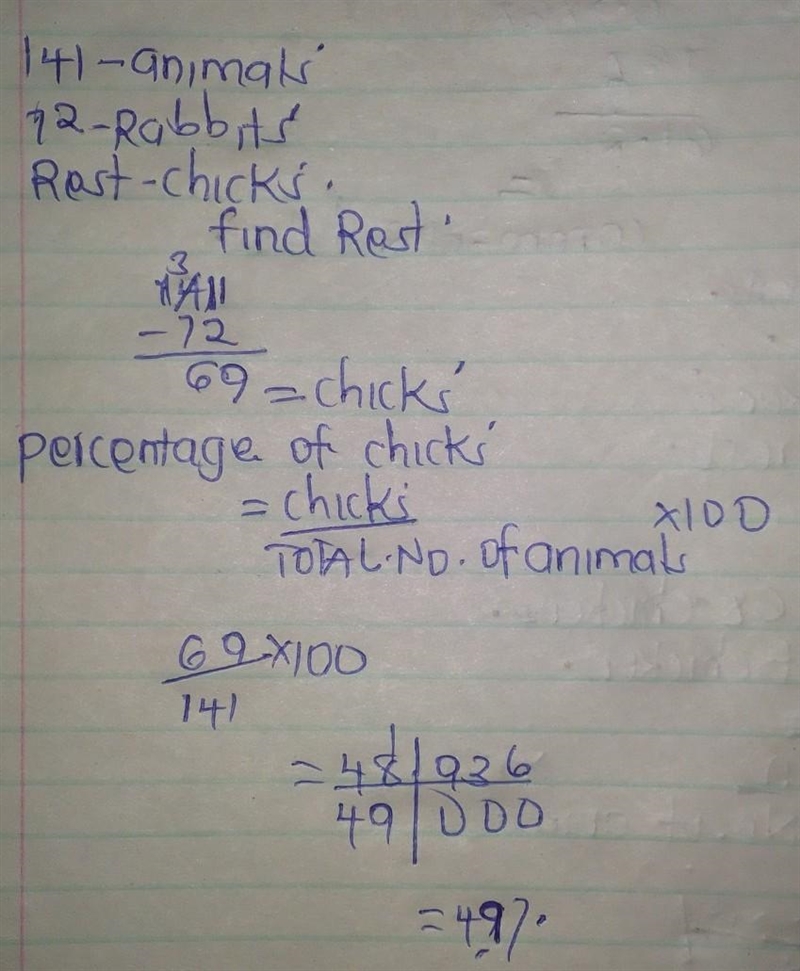 141-animals
72-Rabbits
Rest-chicks.
find Rest.
3
1411
-72
69=chicks
percentage of chicks
=chicks x100
TOTAL.NO.Of animals
69x100
141
1
=48|936
49|000
=49%.